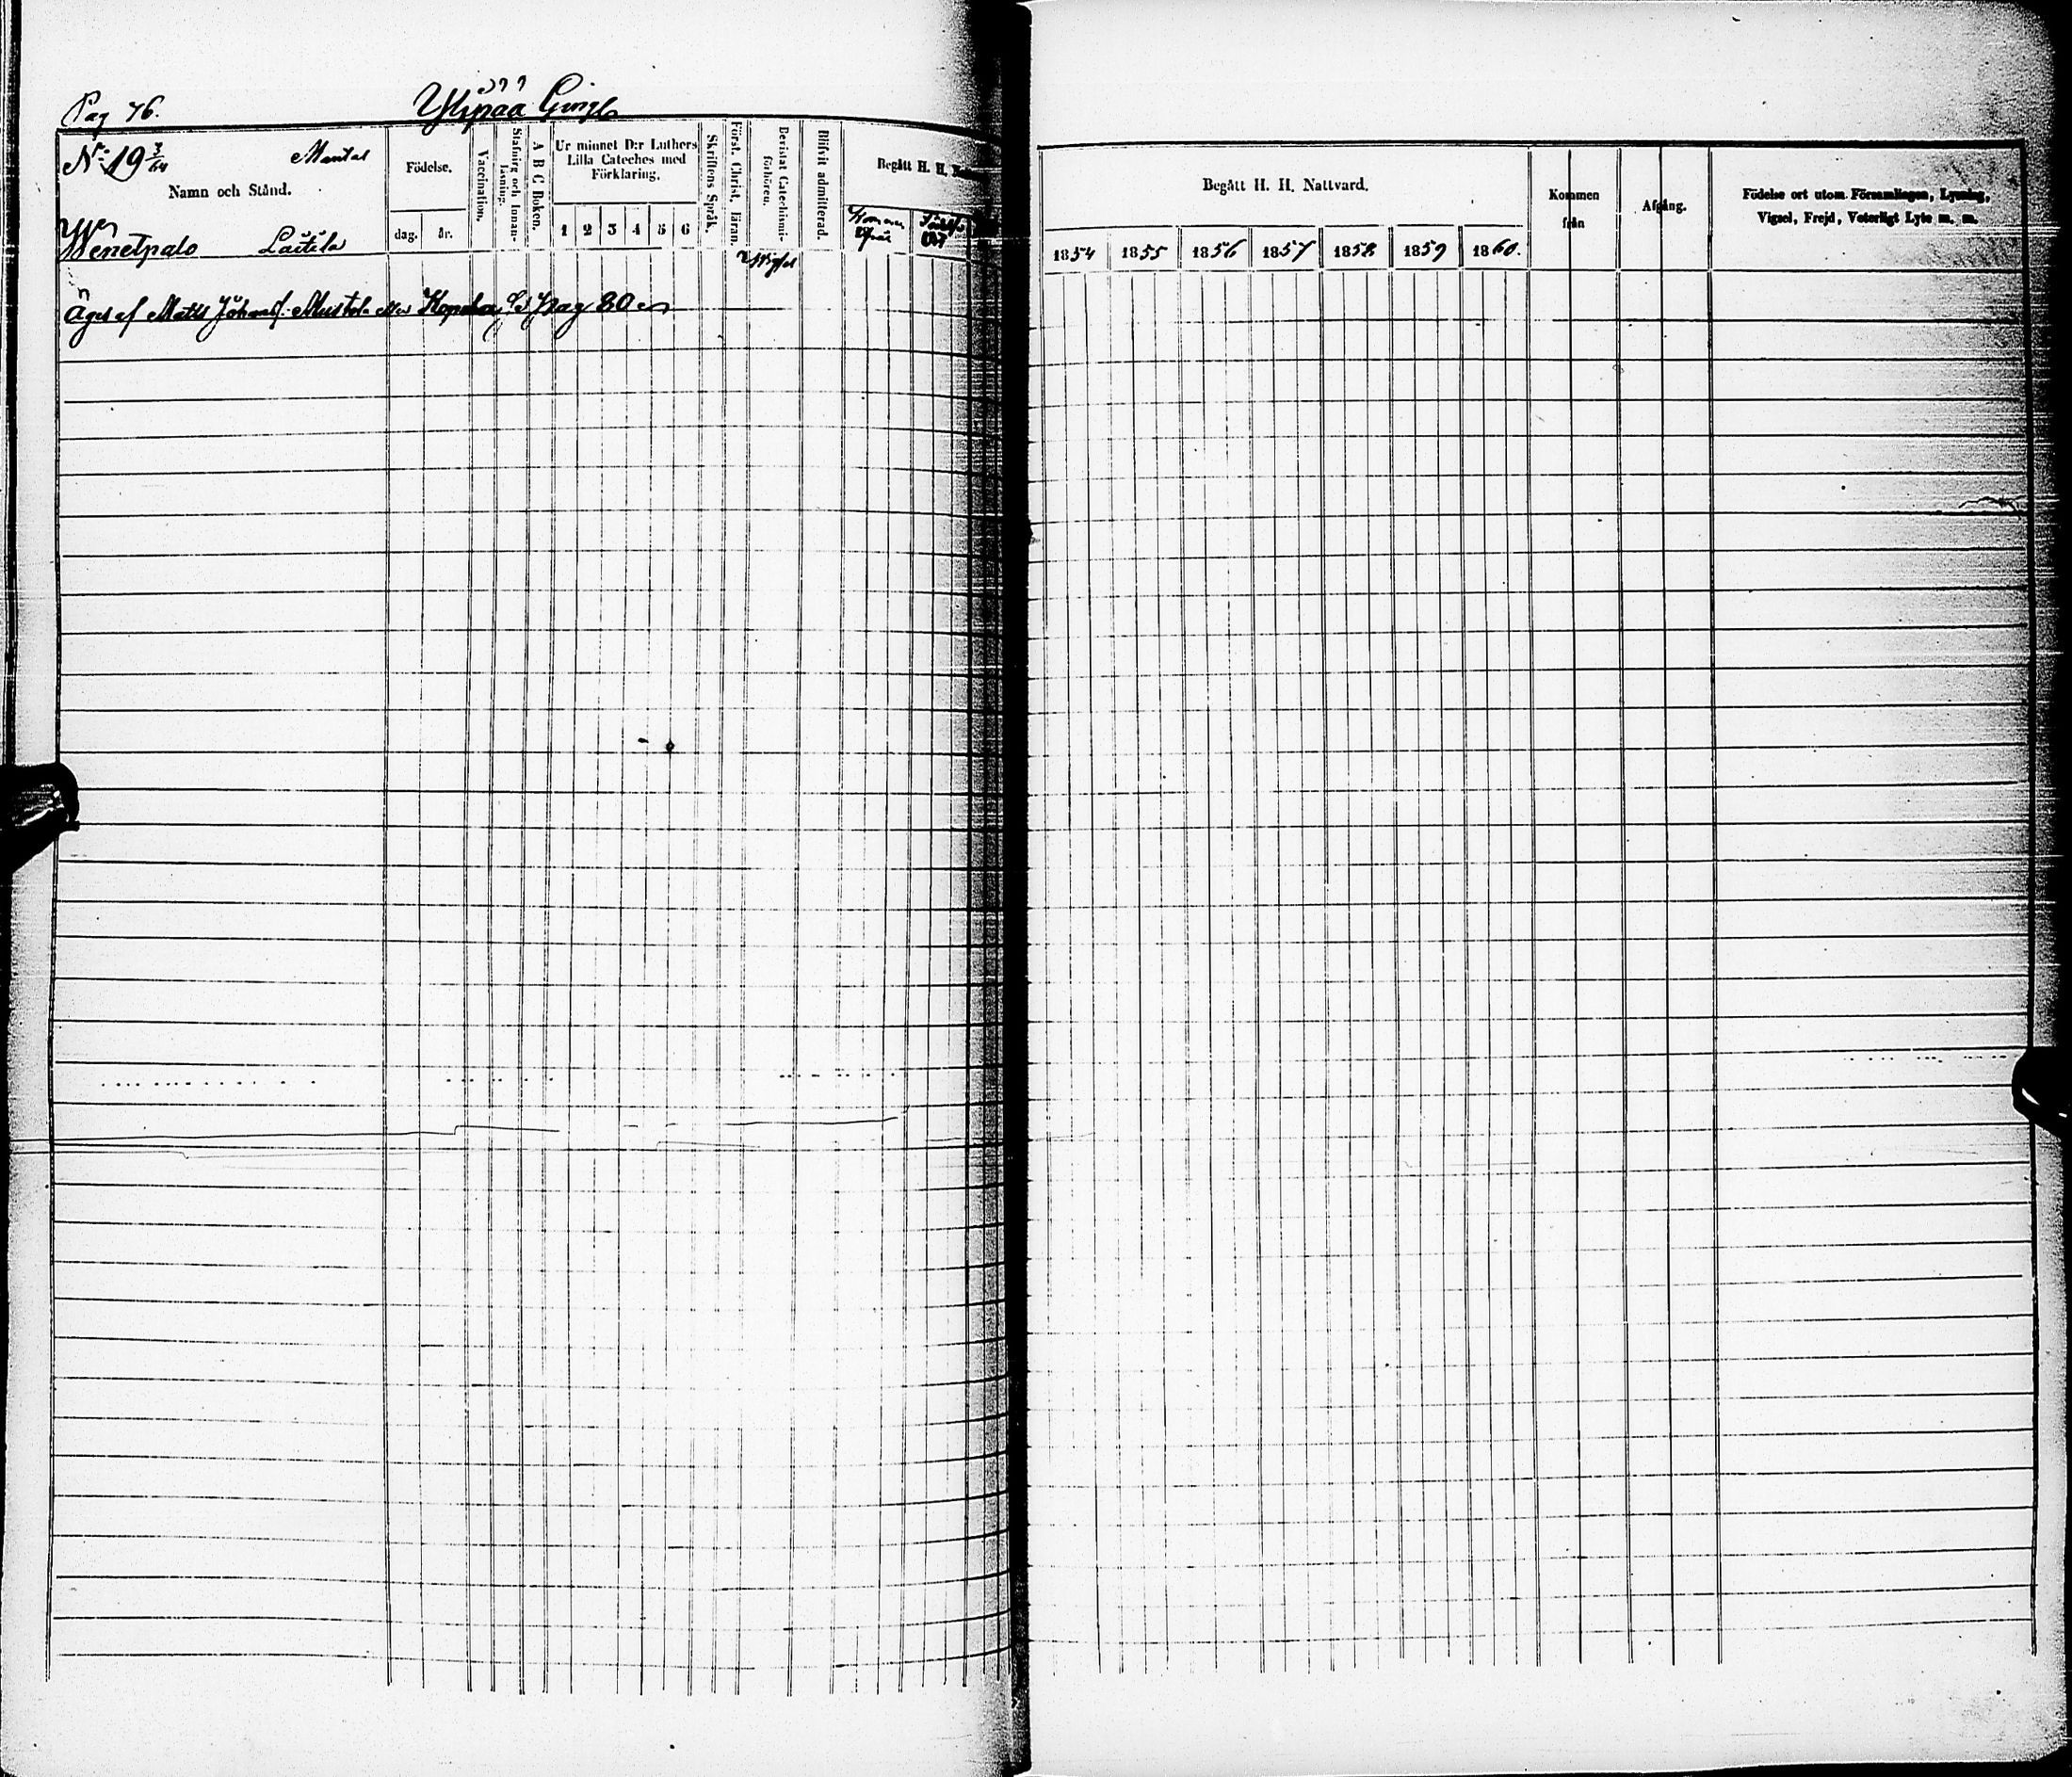 Pag 76.
Ylipää
No 19 3/64 Mantal
Namn och Stånd.
Wenetpalo Laitila
Födelse.
dag. år.
Vaccination.
Stafning och Innan-
läsning.
A B C Boken.
Ur minnet D:r Luthers
Lilla Cateches med
Förklaring.
1 2 3 4 5 6
Skriftens Språk.
Först. Christ. läran.
Bevistat Catechismi-
förhören.
Vigsel
Blifvit admitterad.
Begått H. H.
Äges af Matts Johansf. Mustola eller Pag 80
Begått H. H. Nattvard.
1854 1855 1856 1857 1858 1859 1860.
Kommen
från
Afgång.
Födelse ort utom Församlingen, Lysning,
Vigsel, Frejd, Veterligt Lyte m. m.